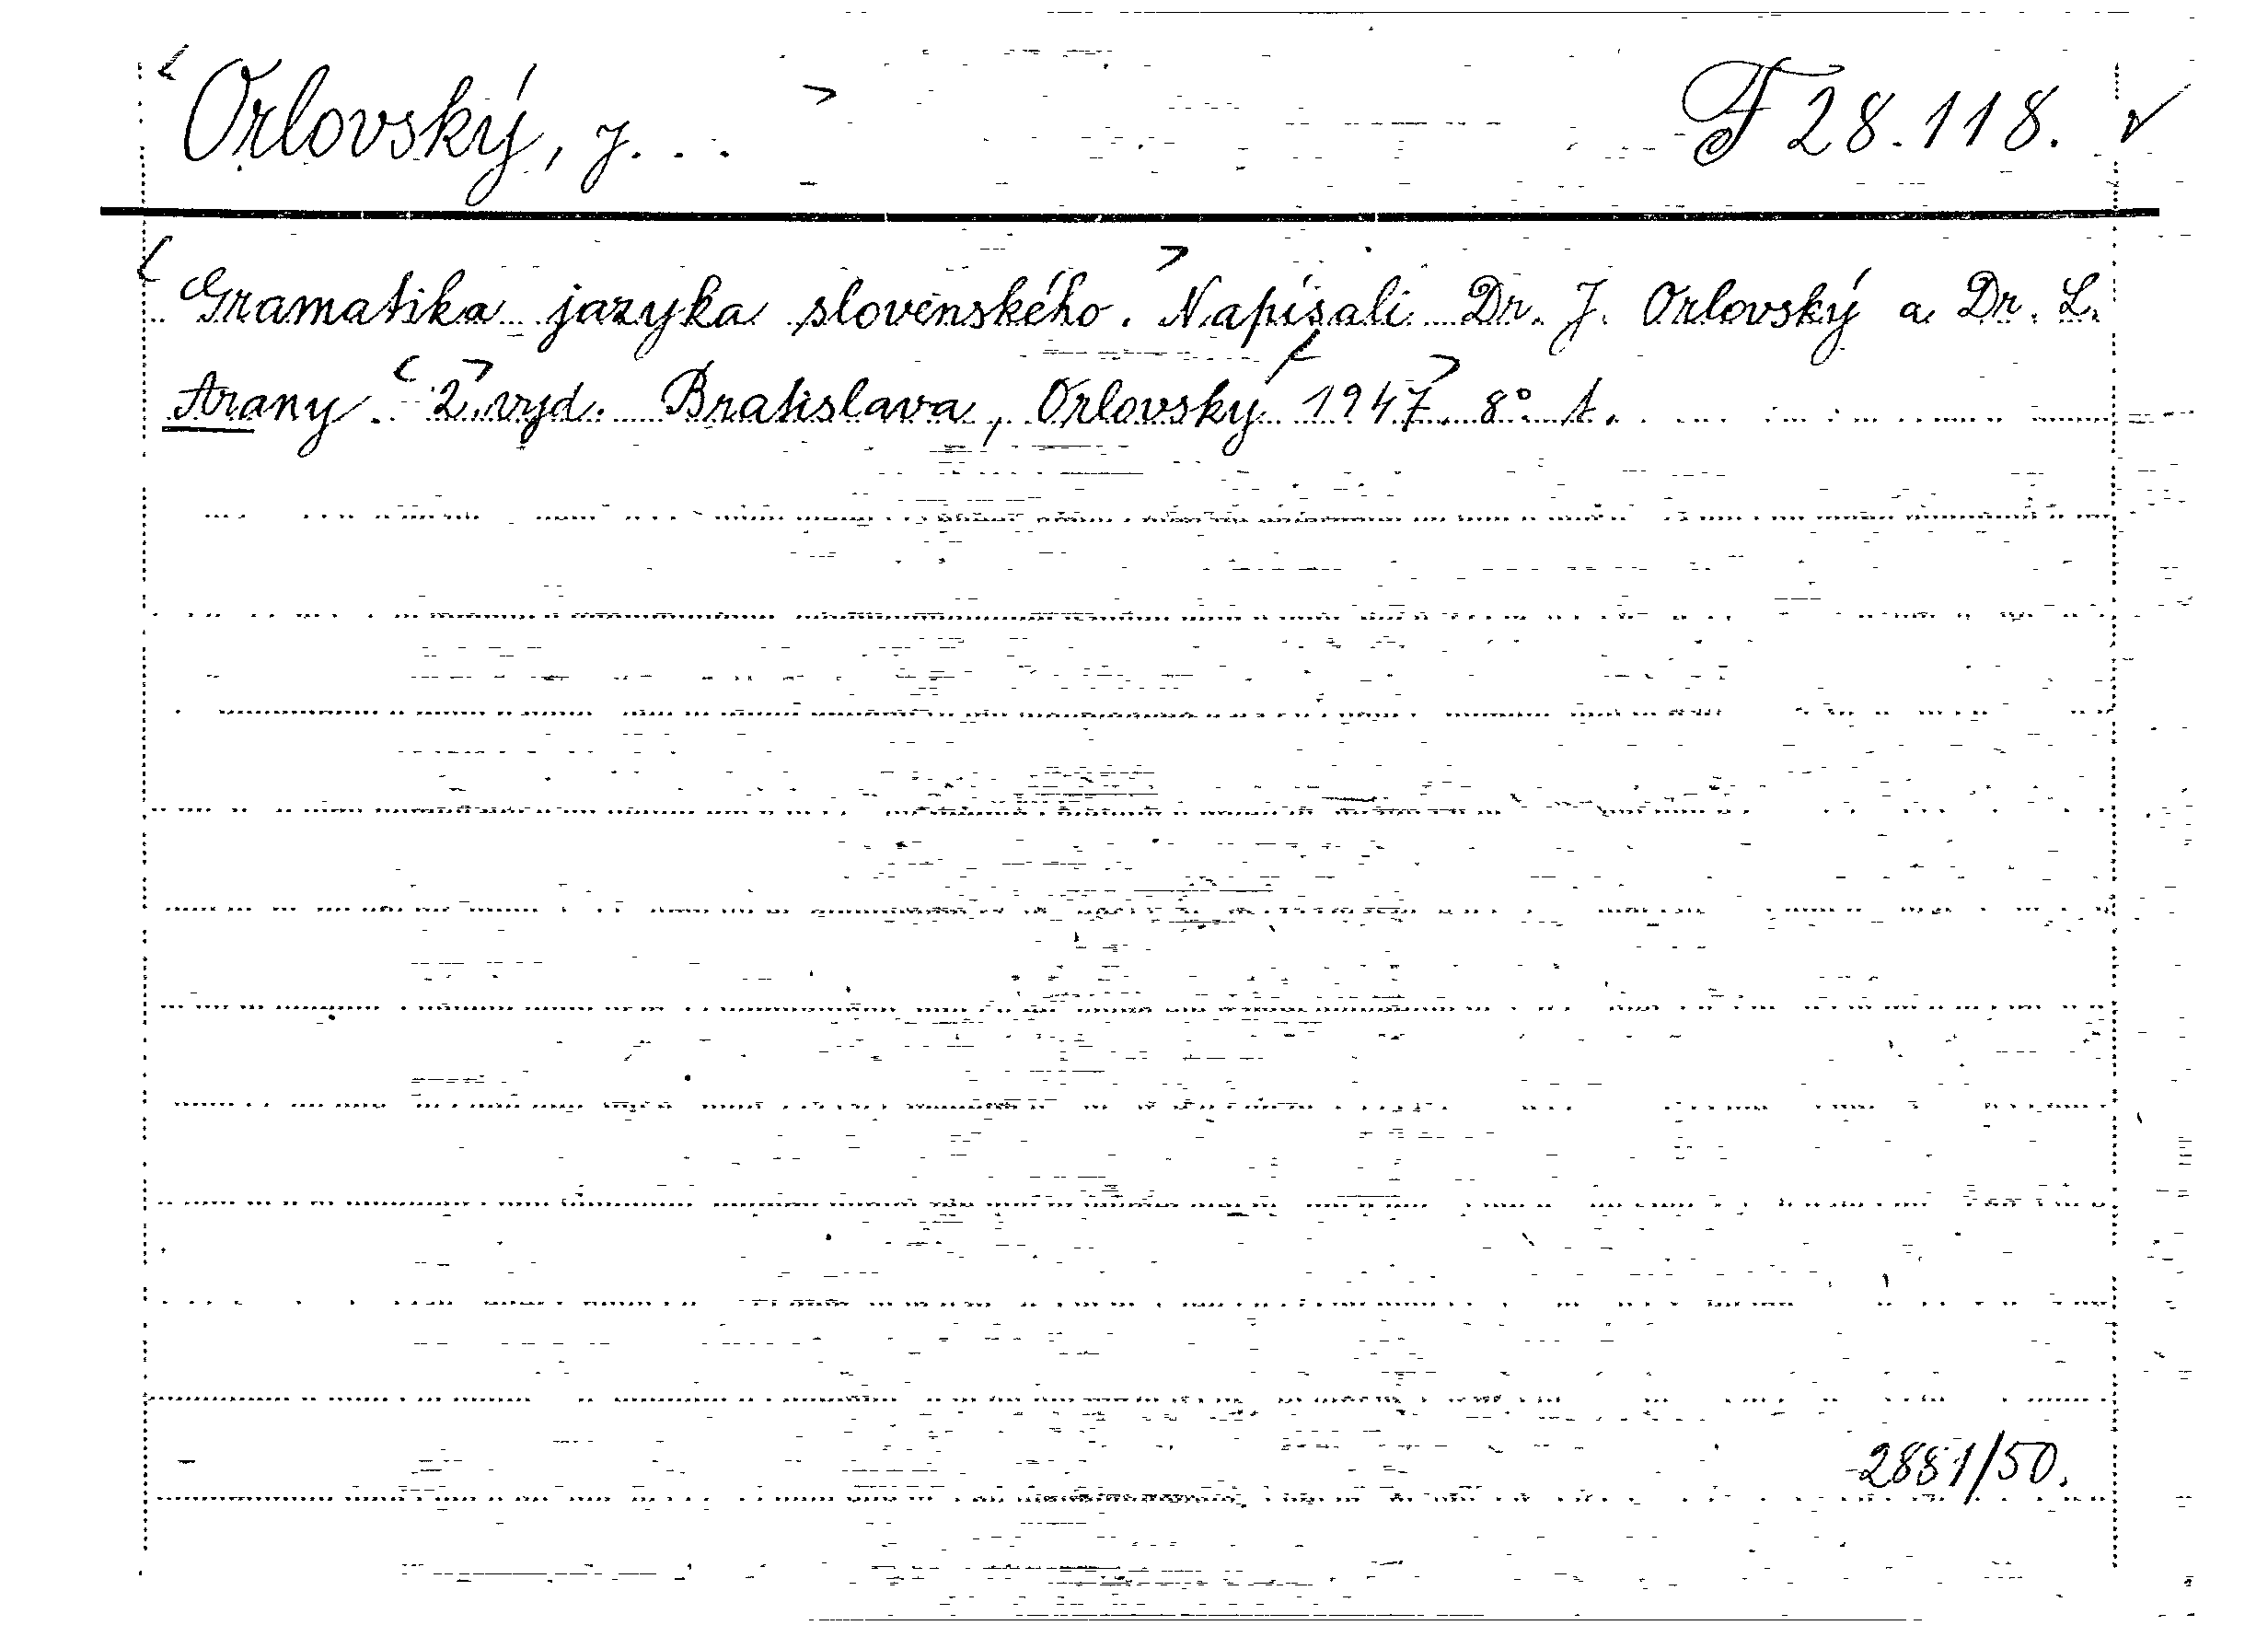 Orlovský, J. . . F 28.118. ✓
Gramatika jazyka slovenského. Napísali Dr. J. Orlovský a Dr. L.
Arany. 2. vyd. Bratislava, Orlovský 1947. 8° t.
2881/50.